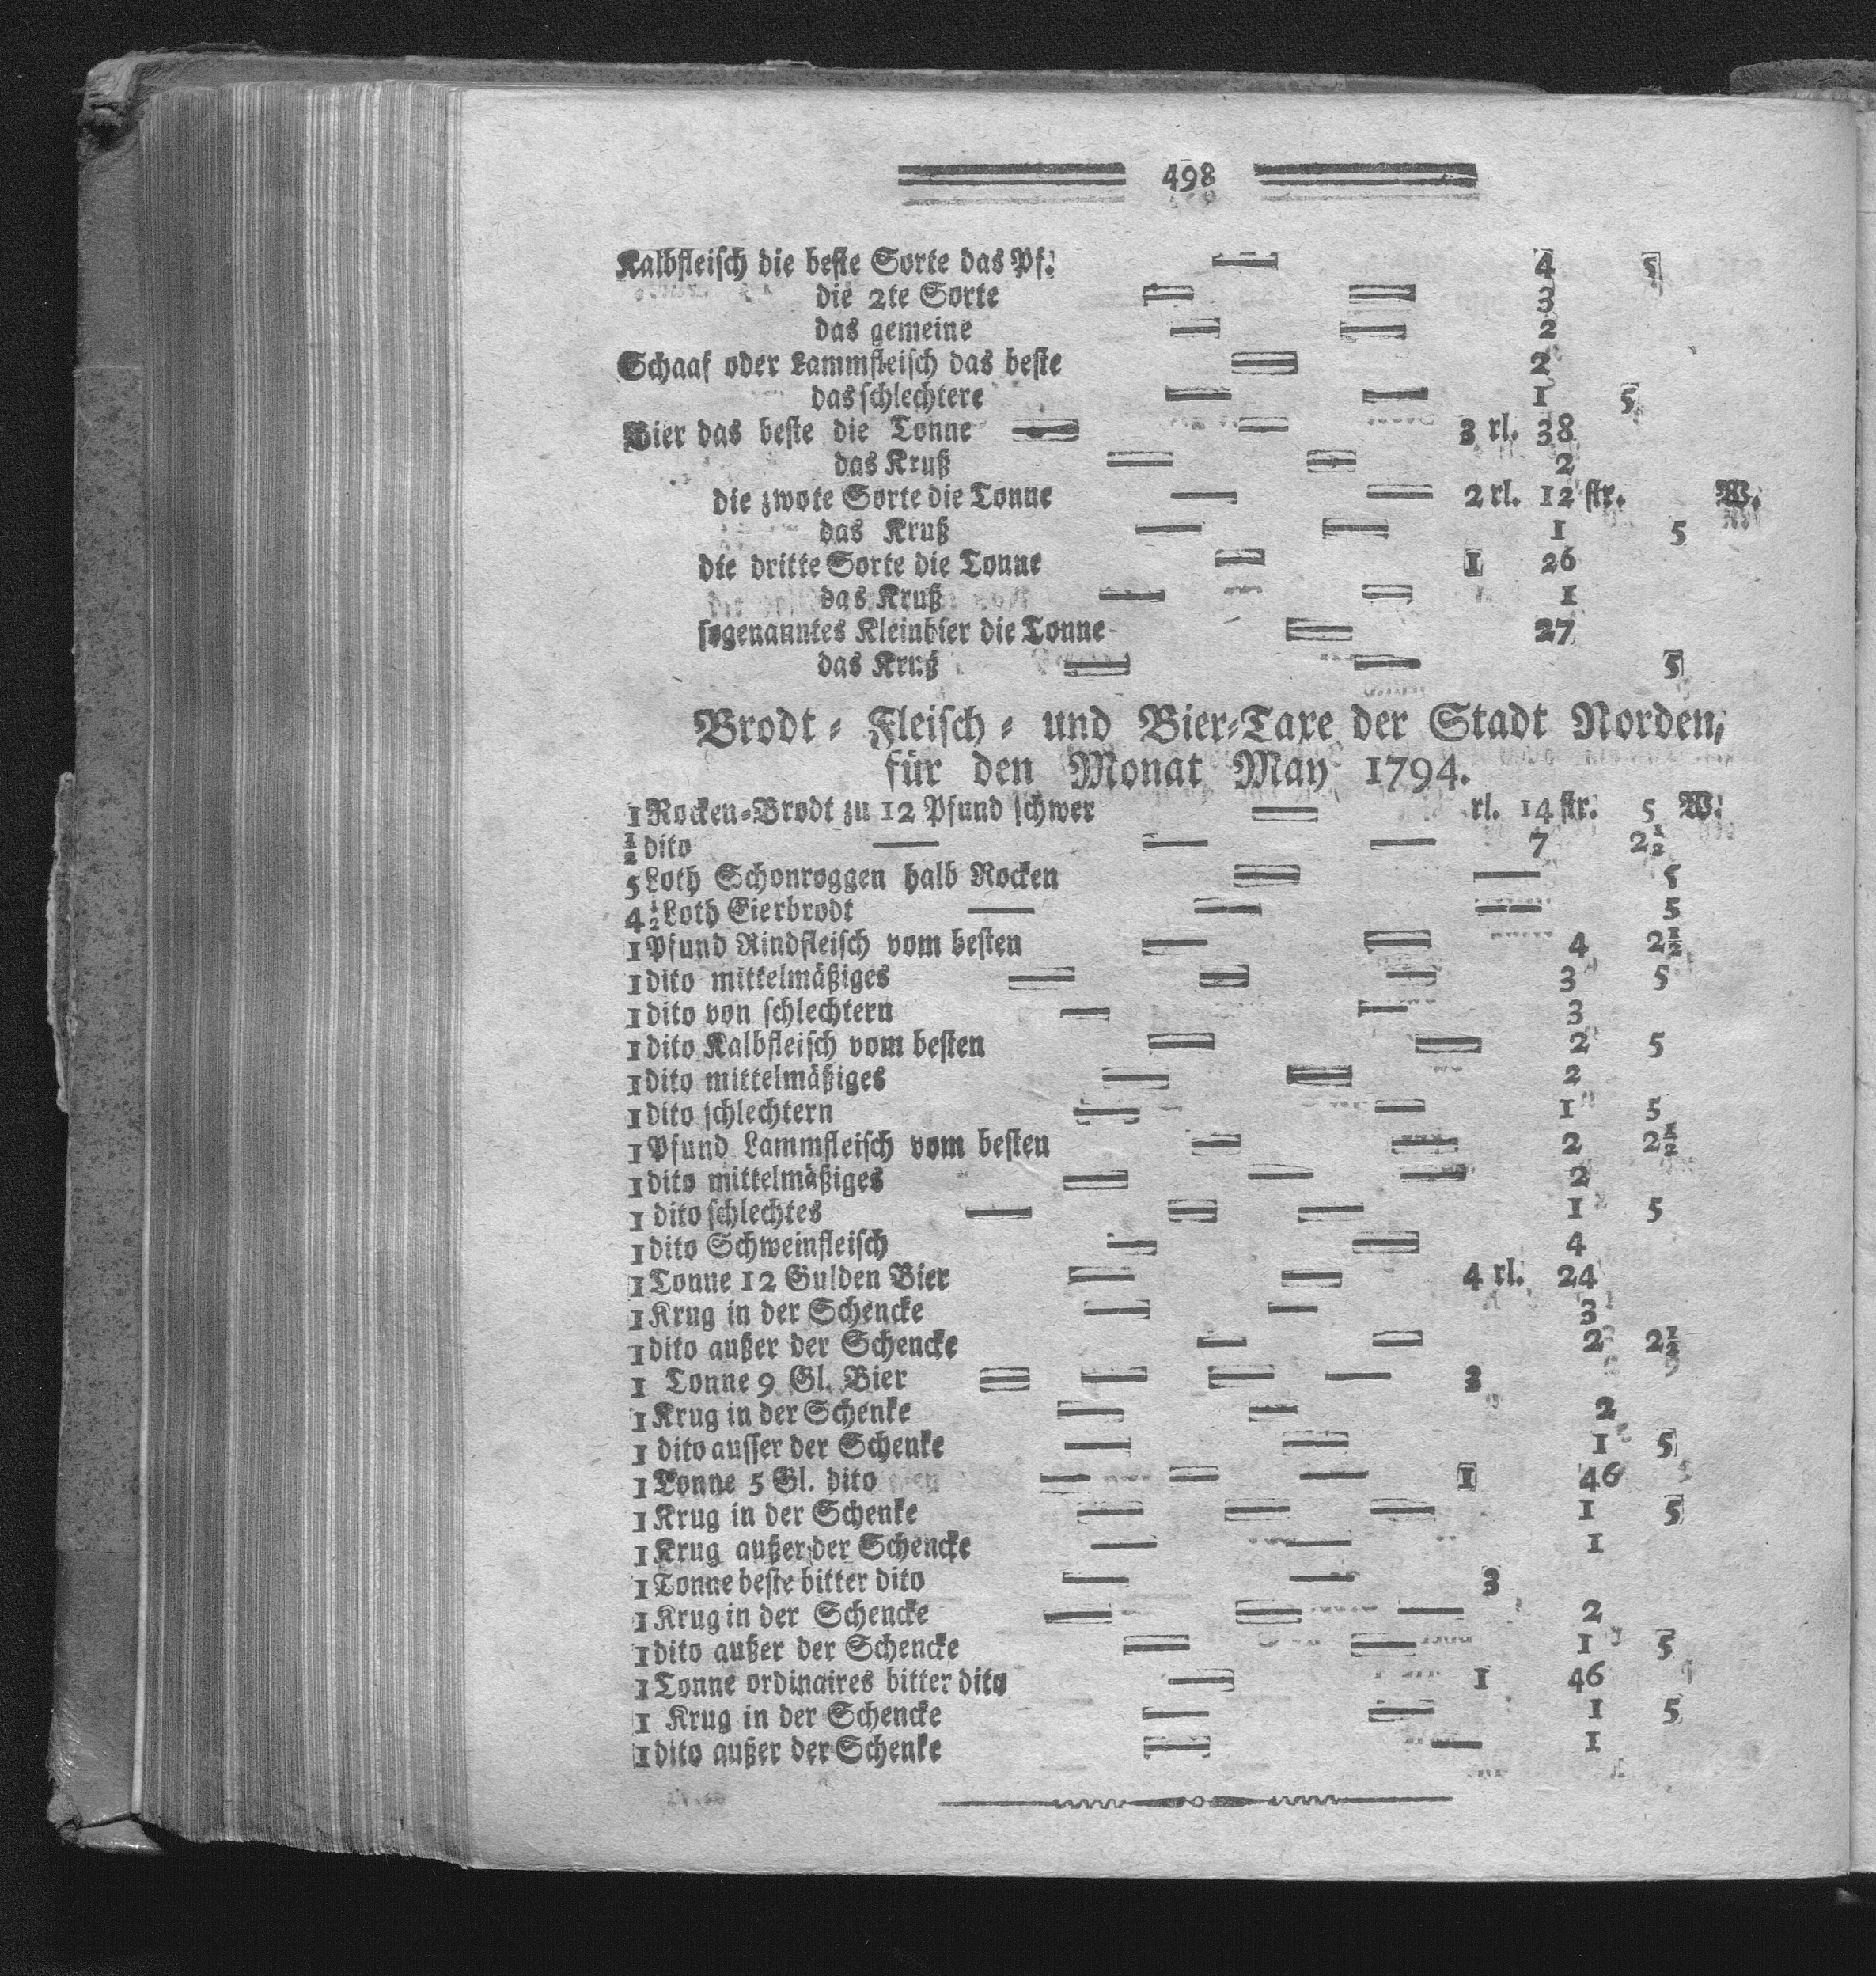 498
Kalbfleisch die beste Sorte das Pf. — 4 5
die 2te Sorte — — 3
das gemeine — — 2
Schaaf oder Lammfleisch das beste — 2
das schlechtere — — 1 5
Bier das beste die Tonne — — 3 rl. 38
das Kruß — — 2
die zwote Sorte die Tonne — — 2 rl. 12 str. W.
das Kruß — — 1 5
die dritte Sorte die Tonne — 1 26
das Kruß — — 1
sogenanntes Kleinbier die Tonne — 27
das Kruß — — 5
Brodt- Fleisch- und Bier-Taxe der Stadt Norden,
für den Monat May 1794.
1 Rocken-Brodt zu 12 Pfund schwer — rl. 14 str. 5 W.
½ dito — — — 7 2½
5 Loth Schonroggen halb Rocken — — 5
4½ Loth Eierbrodt — — — 5
1 Pfund Rindfleisch vom besten — — 4 2½
1 dito mittelmäßiges — — — 3 5
1 dito von schlechtern — — 3
1 dito Kalbfleisch vom besten — — 2 5
1 dito mittelmäßiges — — 2
1 dito schlechtern — — 1 5
1 Pfund Lammfleisch vom besten — — 2 2½
1 dito mittelmäßiges — — — 2
1 dito schlechtes — — — 1 5
1 dito Schweinfleisch — — 4
1 Tonne 12 Gulden Bier — — 4 rl. 24
1 Krug in der Schencke — — 3
1 dito außer der Schencke — — 2 2½
1 Tonne 9 Gl. Bier — — — — 3
1 Krug in der Schenke — — 2
1 dito ausser der Schenke — — 1 5
1 Tonne 5 Gl. dito — — — 1 46
1 Krug in der Schenke — — — 1 5
1 Krug außer der Schencke — — 1
1 Tonne beste bitter dito — — 3
1 Krug in der Schencke — — — 2
1 dito außer der Schencke — — 1 5
1 Tonne ordinaires bitter dito — 1 46
1 Krug in der Schencke — — 1 5
1 dito außer der Schenke — — 1